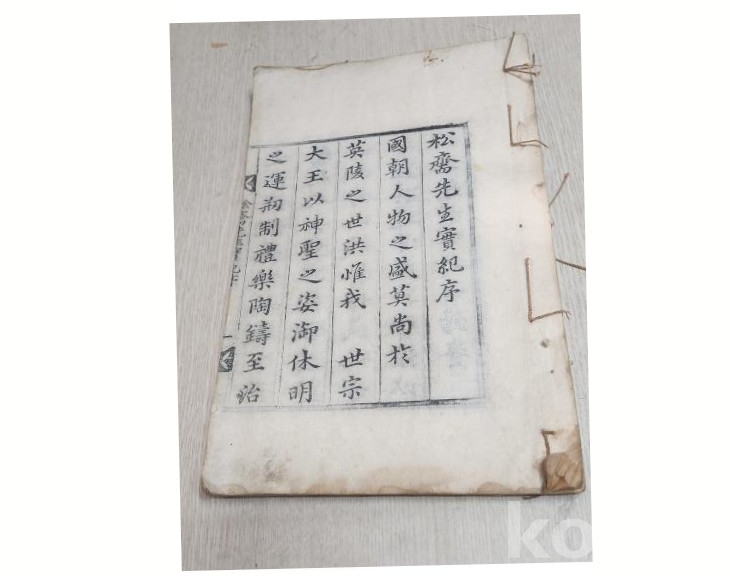 松齋先生實紀序
國朝人物之盛莫尚於
英陵之世洪惟我 世宗
大王以神聖之姿御休明
之運刱制禮樂陶鑄至治
ko